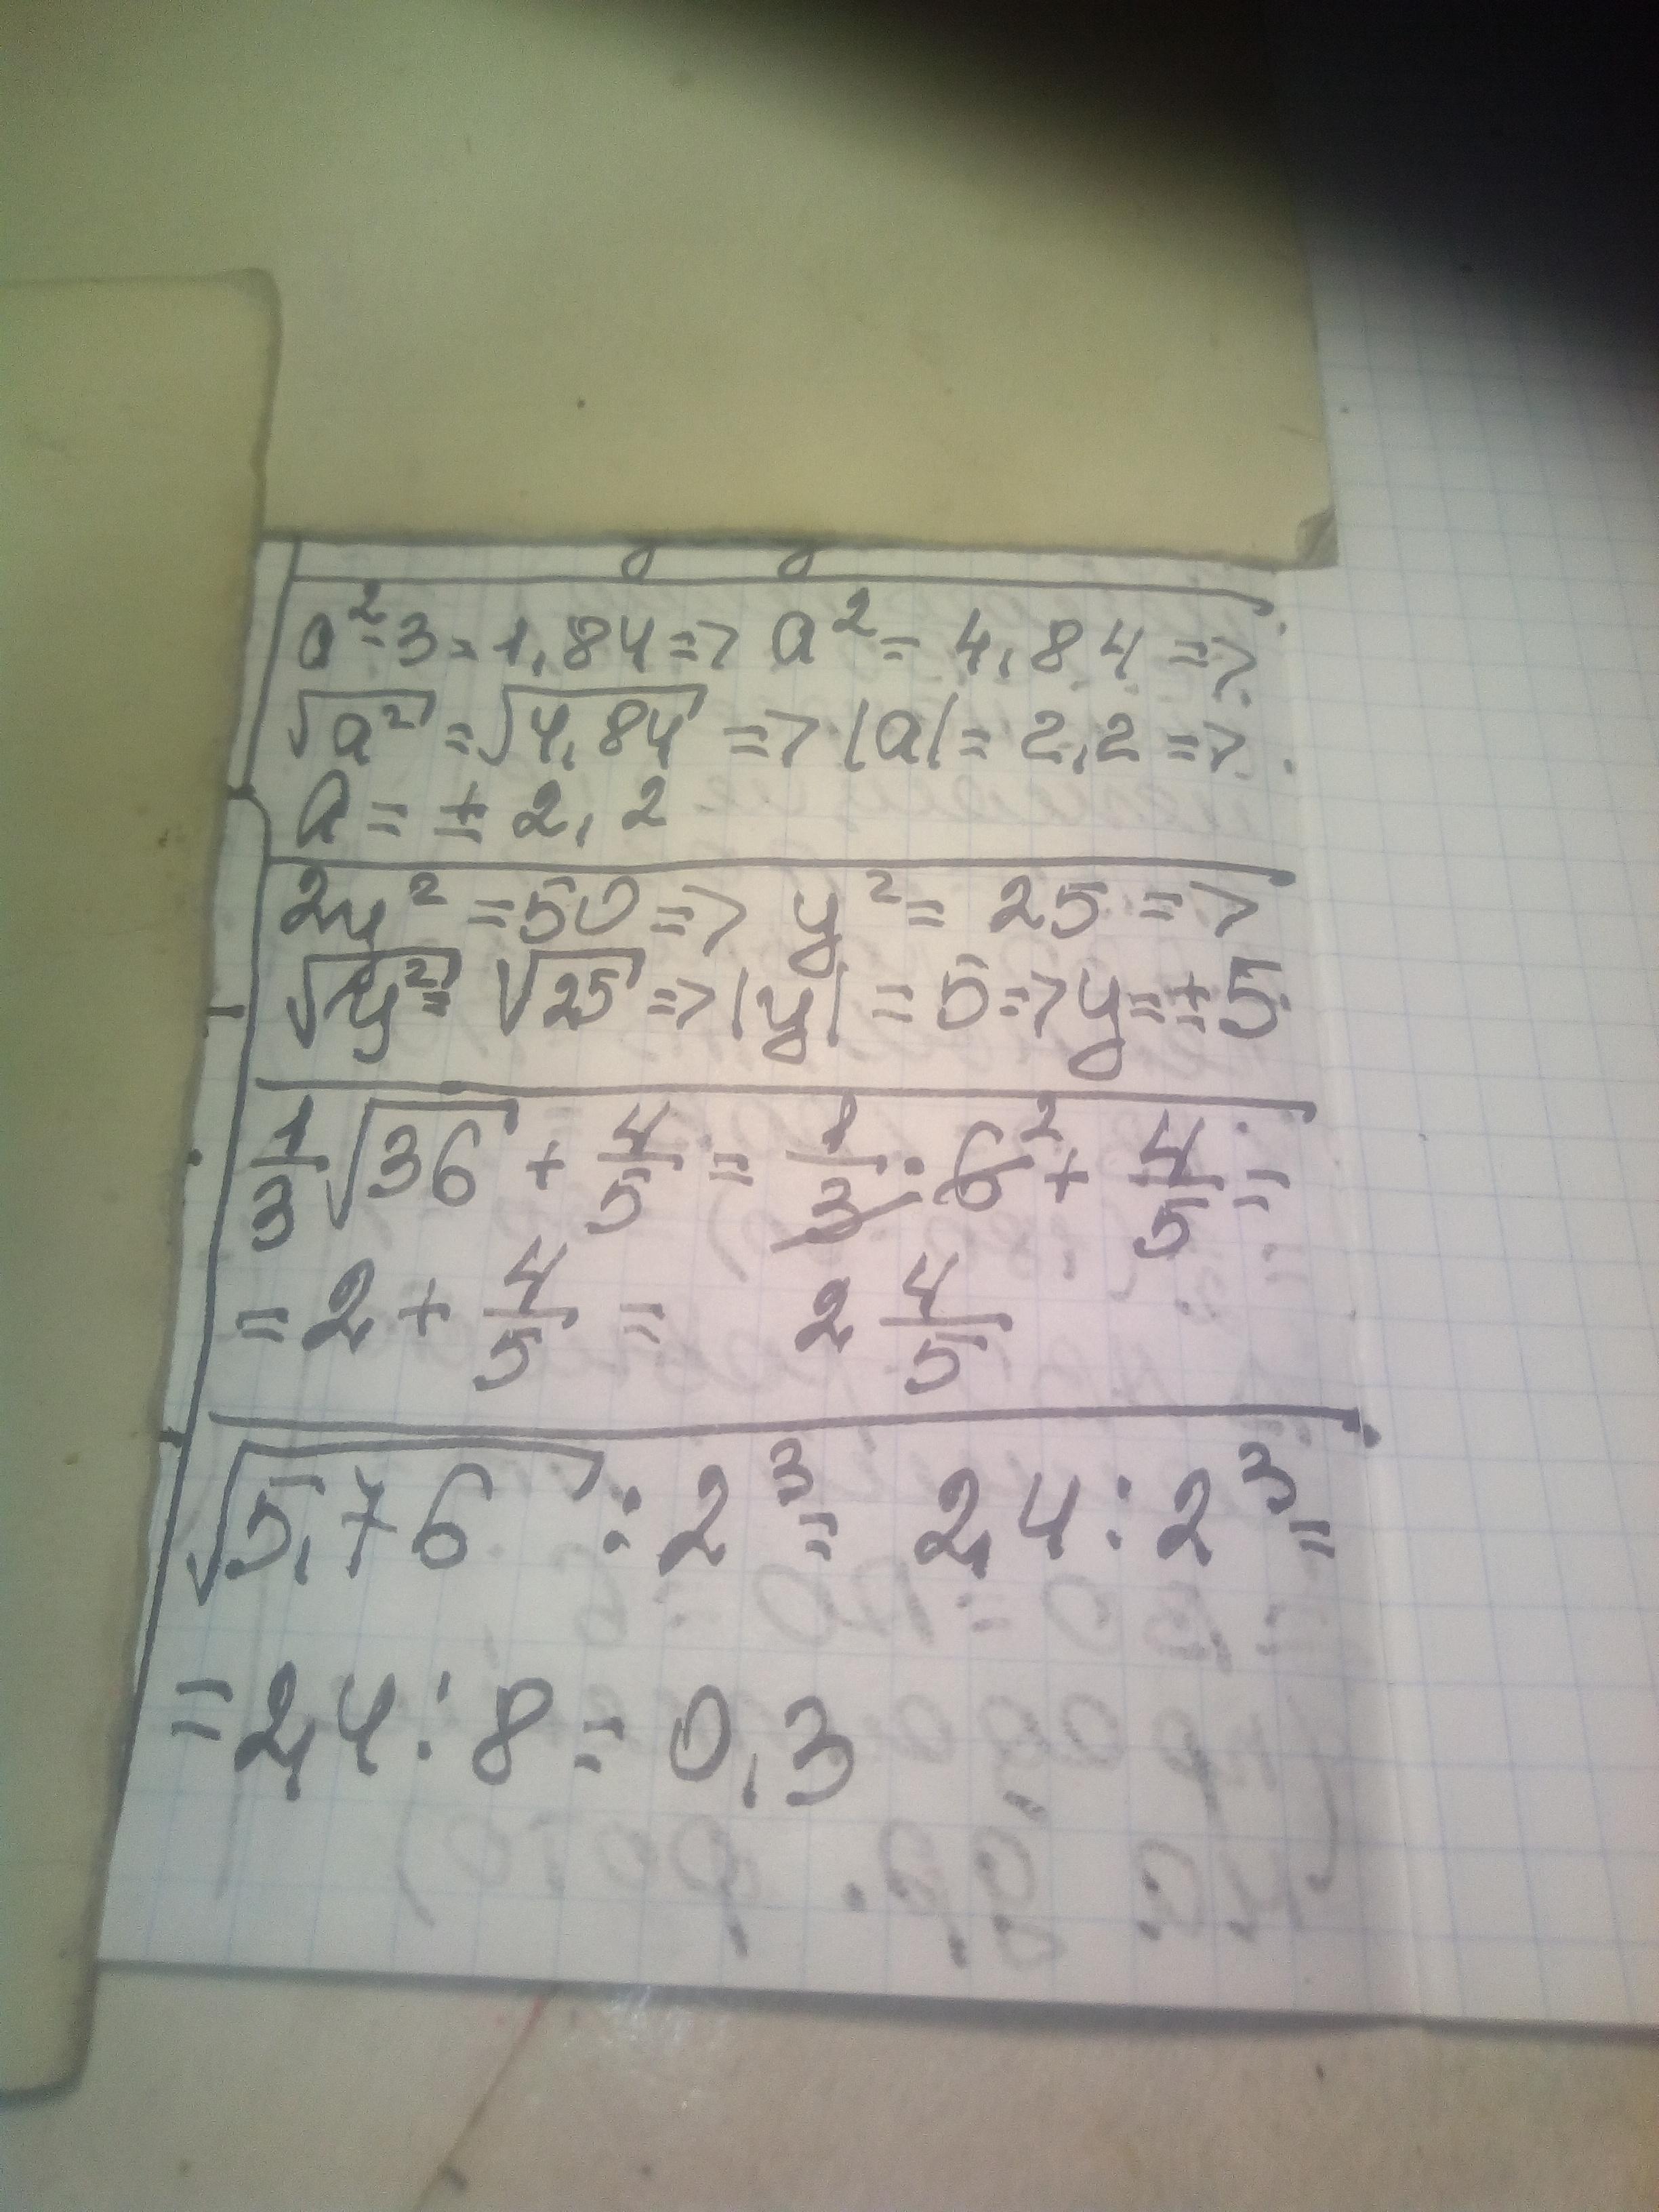 a²-3=1,84=> a²=4,84=>
√a²=√4,84 => |a|=2,2=>
a=±2,2
2y²=50=> y²=25=>
√y²=√25=>|y|=5=>y=±5
1/3√36+4/5=1/3·6²+4/5=
=2+4/5= 2 4/5
√5,76:2³=2,4:2³=
=2,4:8=0,3